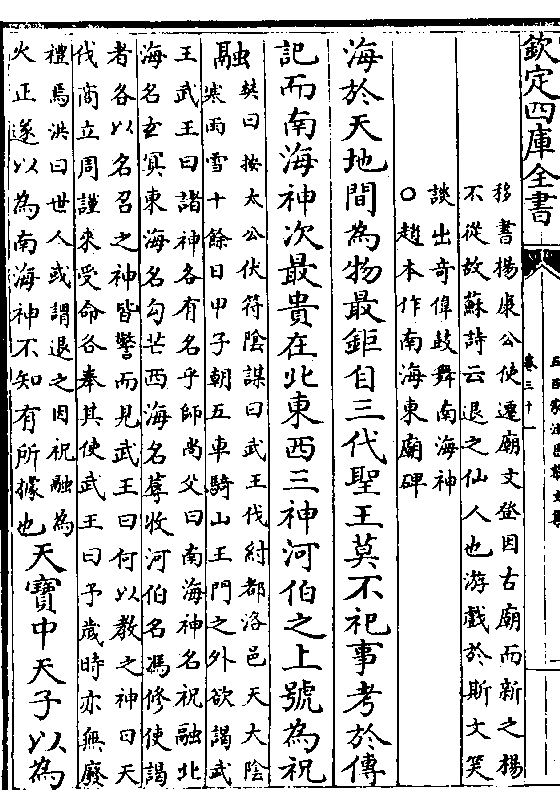 欽定四庫全書
卷三十一
移書揚康公使遷廟文登因古廟而新之揚
不從故蘇詩云退之仙人也游戲於斯文笑
談出奇偉鼓舞南海神
○趙本作南海東廟碑
海於天地間為物最鉅自三代聖王莫不祀事考於傳
記而南海神次最貴在北東西三神河伯之上號為祝
融
樊曰按太公伏符陰謀曰武王伐紂都洛邑天大陰
寒雨雪十餘日甲子朝五車騎山王門之外欲謁武
王武王曰諸神各有名乎師尚父曰南海神名祝融北
海名玄冥東海名勾芒西海名蓐收河伯名馮修使謁
者各以名召之神皆驚而見武王曰何以教之神曰天
伐商立周謹來受命各奉其使武王曰予歲時亦無廢
禮焉洪曰世人或謂退之因祝融為
火正遂以為南海神不知有所據也
天寶中天子以為